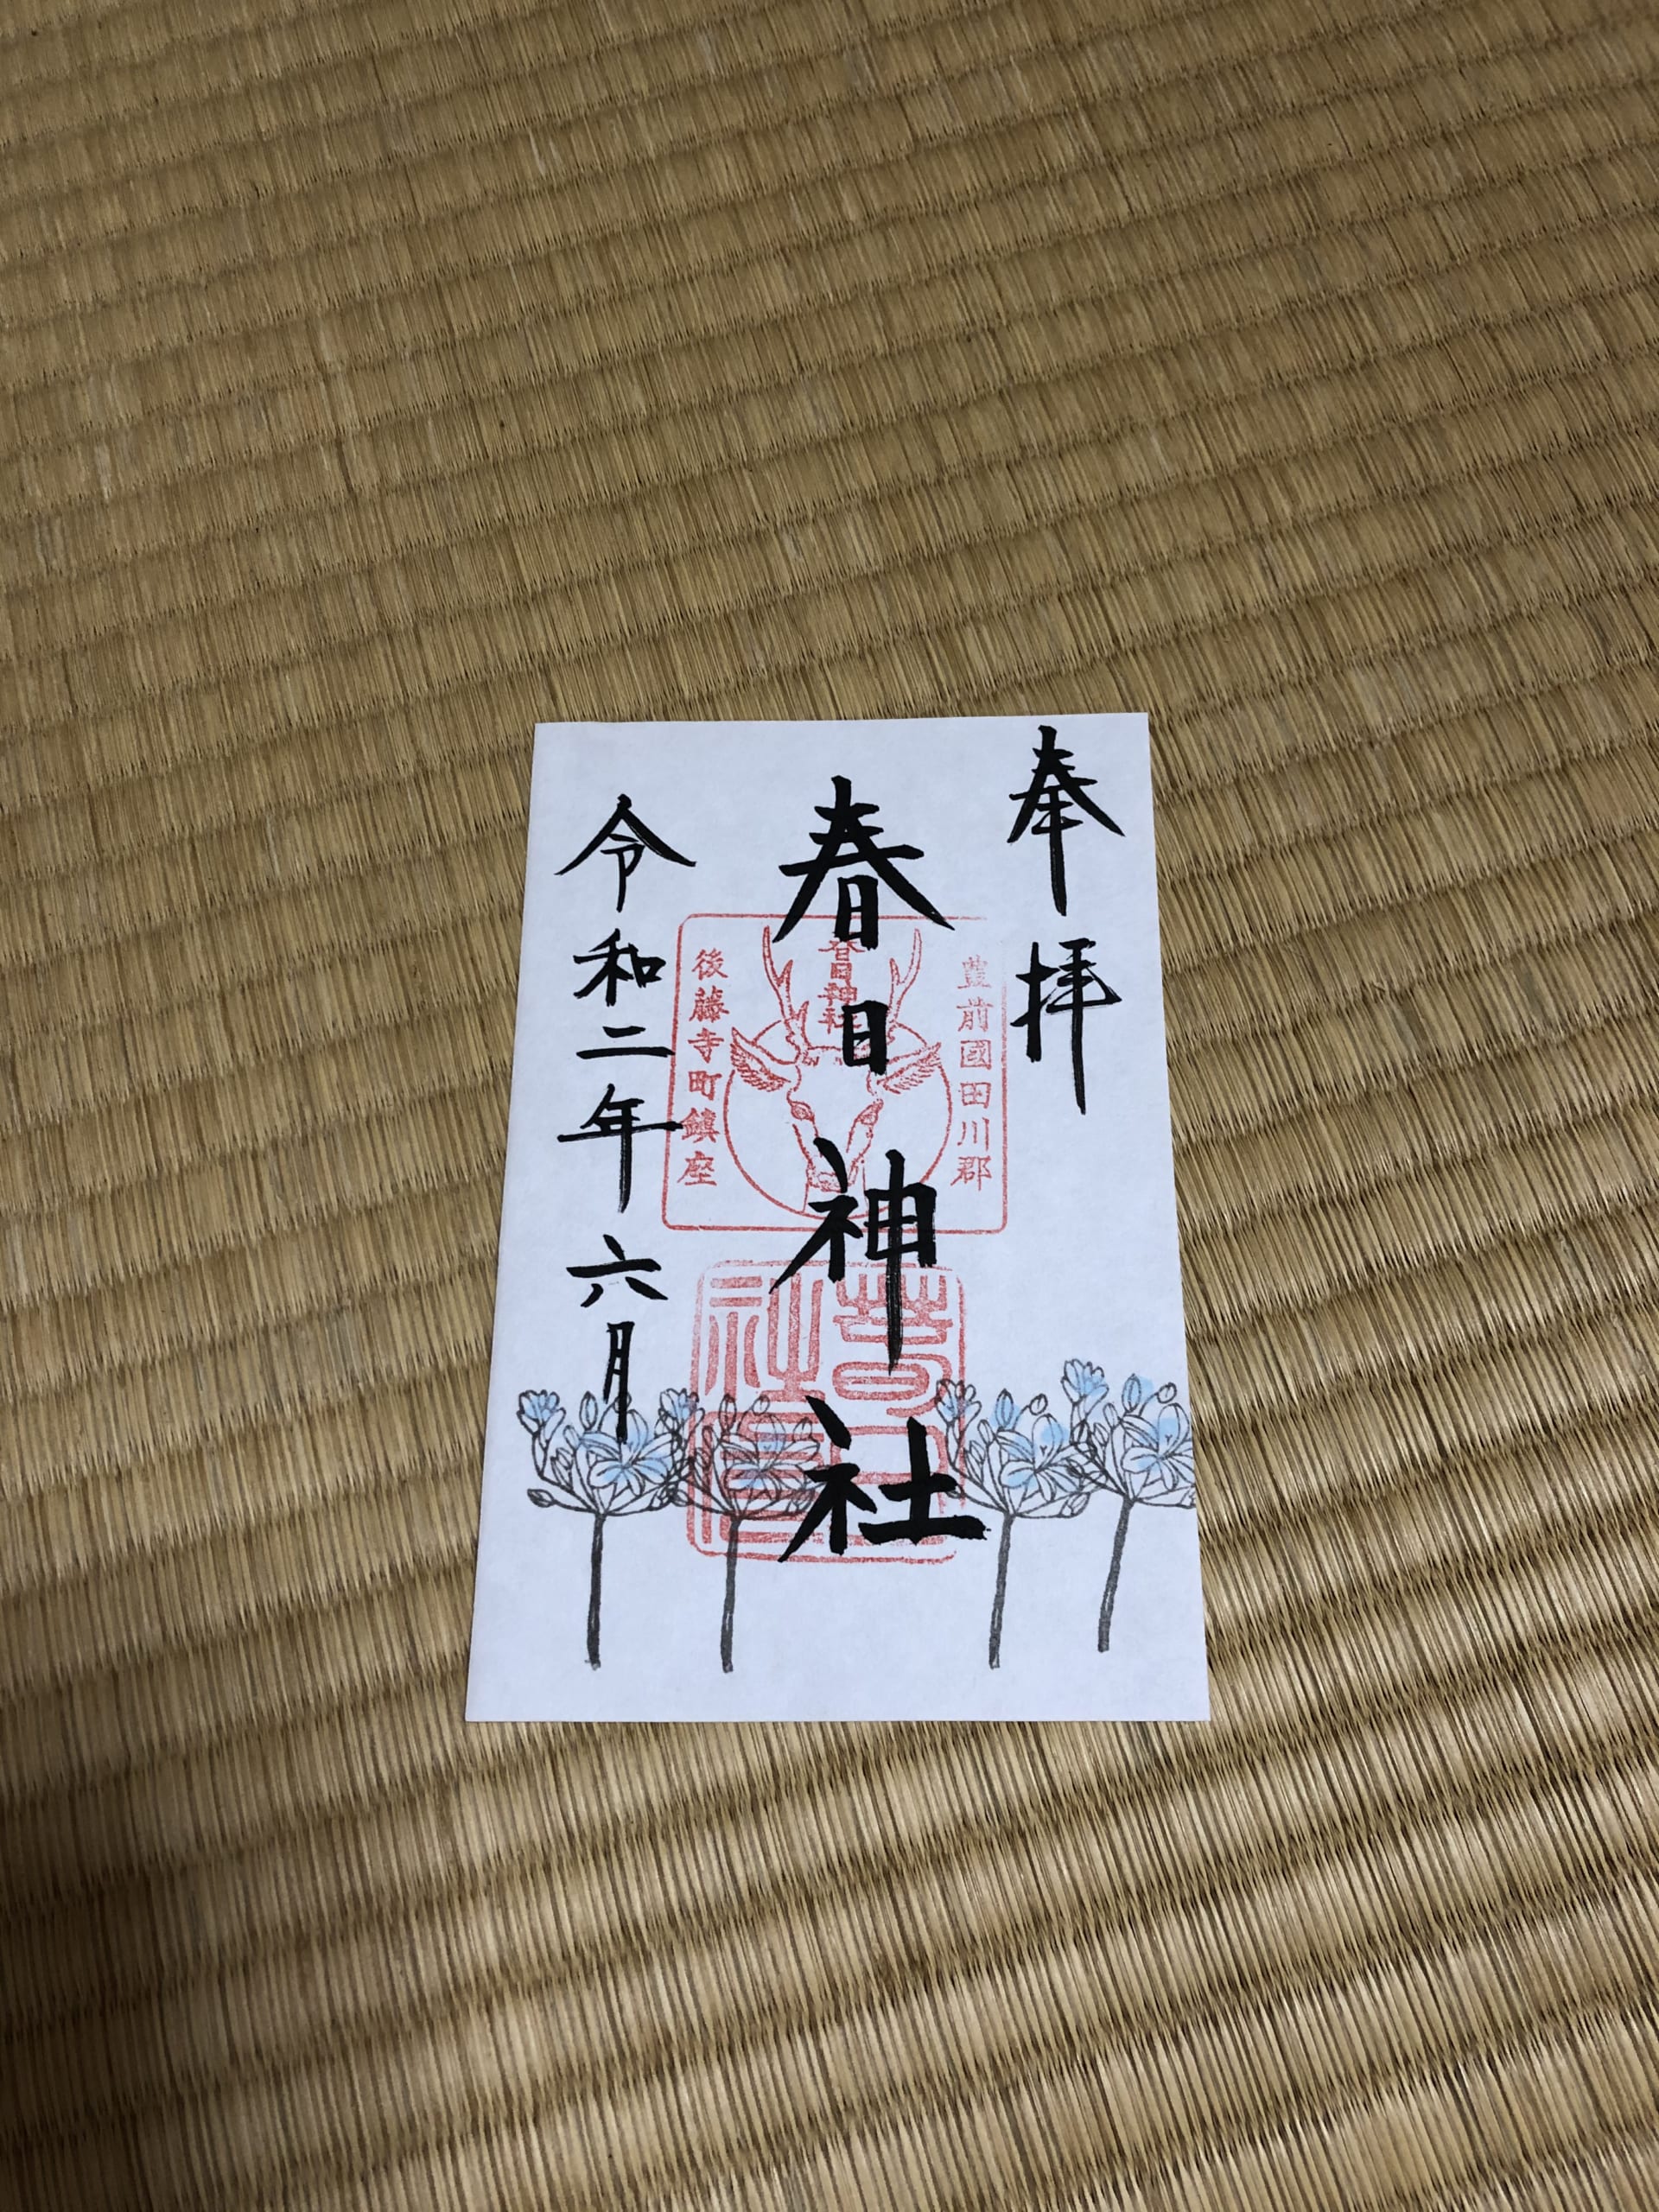 奉拝
豊前國田川郡
春日神社
春日神社
後藤寺町鎮座
令和二年六月